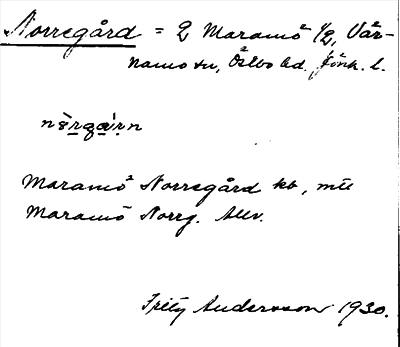 Norregård = 2 Maramö 1/2, Vär-
namo sn, Östbo hd. Jönk. l.
nòrgạ̊rn
Maramö Norregård kb, mtl
Maramö Norrg. blev.
Fritz Andersson 1930.